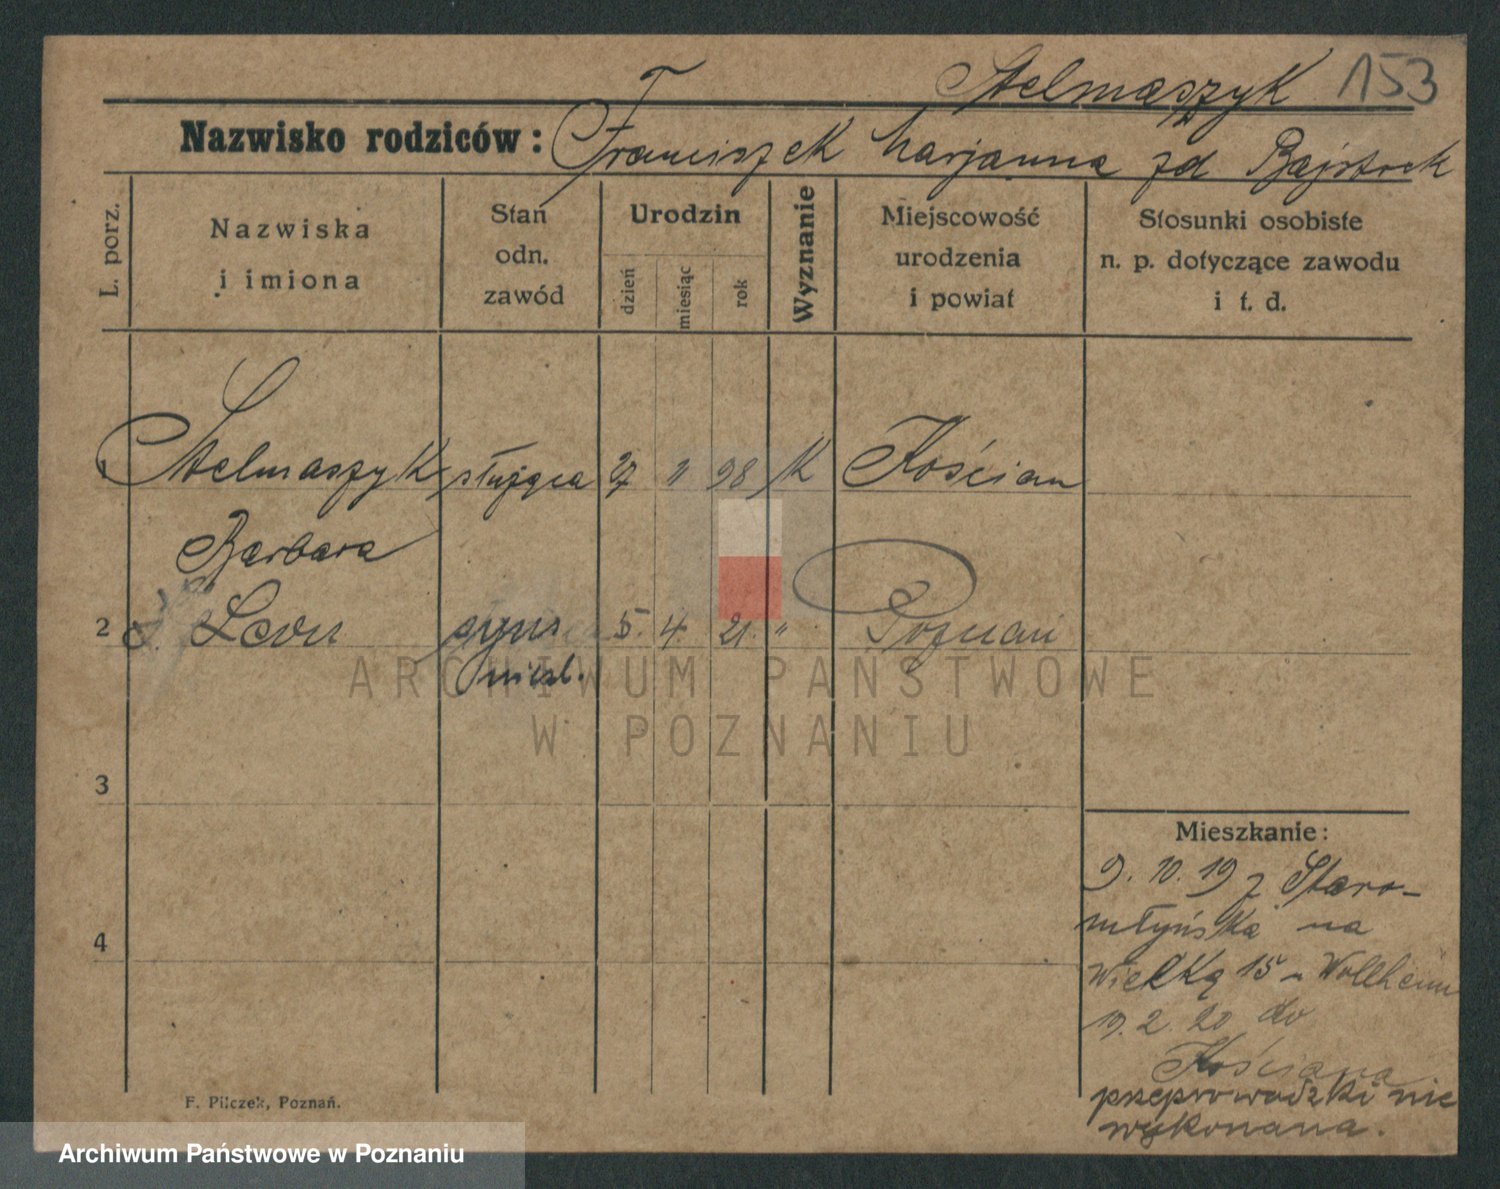 Stelmaszyk 153
Nazwisko rodziców: Franciszek Marjanna zd Bajstock
L. porz.
Nazwiska
i imiona
Stan
odn.
zawód
Urodzin
dzień
miesiąc
rok
Wyznanie
Miejscowość
urodzenia
i powiat
Stosunki osobiste
n. p. dotyczące zawodu
i t. d.
1 Stelmaszyk służąca 27 11 98 K Kościan
Barbara
2 Leon syn 5. 4. 21. " Poznań
nieśl.
3
4
Mieszkanie:
9. 10. 19 z Staro-
młyńska na
Wielką 15 Wollheim
19. 2. 20 do
Kościana
przeprowadzki nie
wykonana.
F. Pilczek, Poznań.
ARCHIWUM PAŃSTWOWE
W POZNANIU
Archiwum Państwowe w Poznaniu